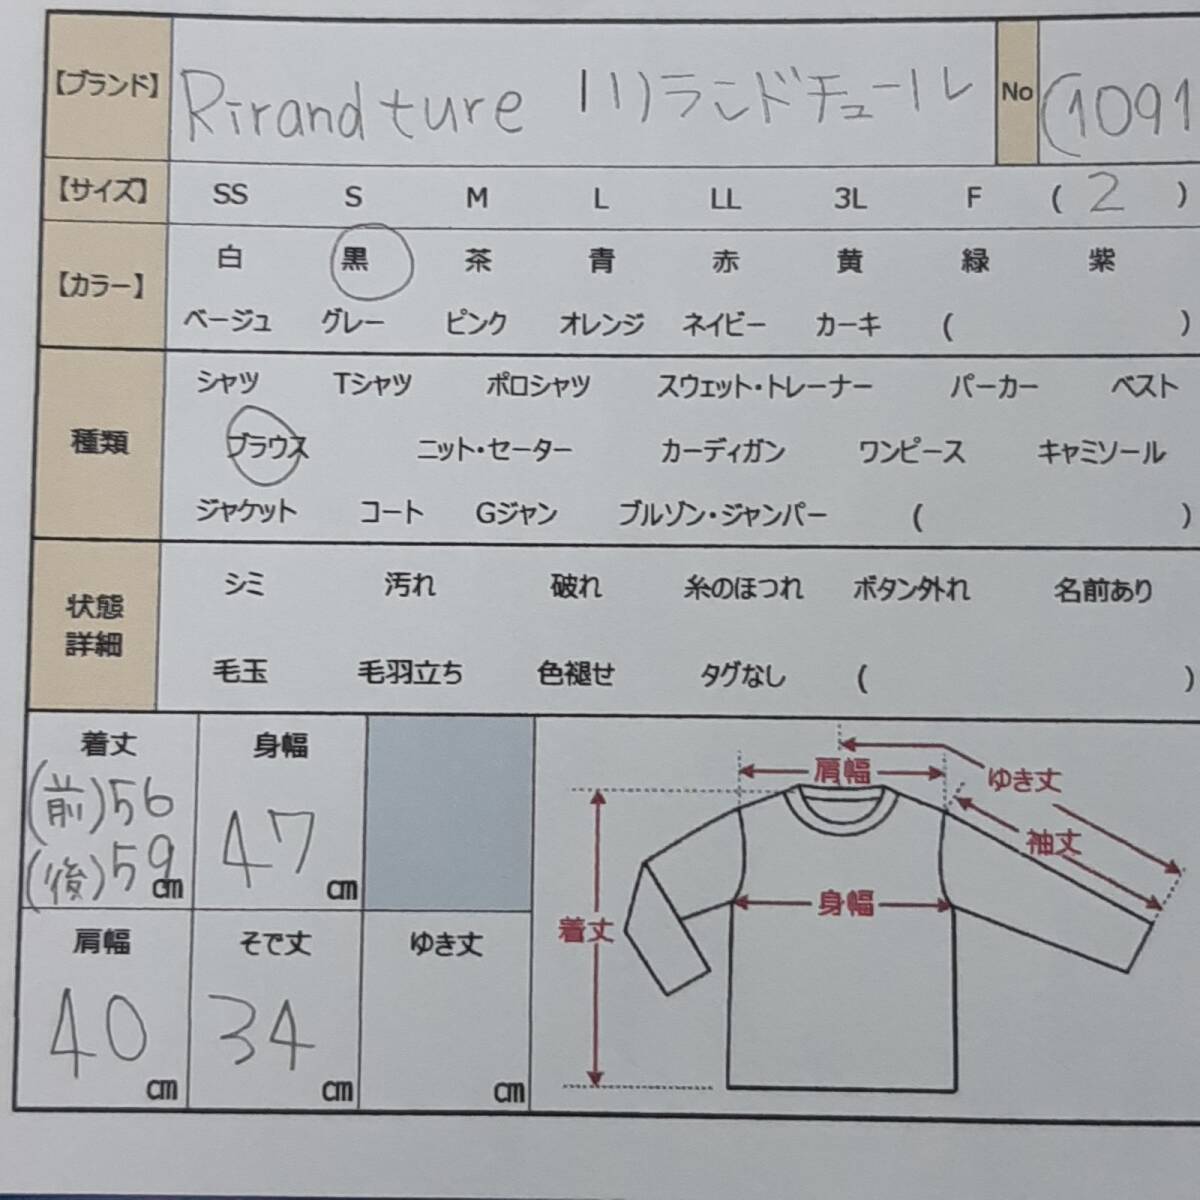 【ブランド】 Rirandture リリランドチュール No (1091
【サイズ】 SS S M L LL 3L F ( 2 )
【カラー】 白 黒 茶 青 赤 黄 緑 紫
ベージュ グレー ピンク オレンジ ネイビー カーキ ( )
種類 シャツ Tシャツ ポロシャツ スウェット・トレーナー パーカー ベスト
ブラウス ニット・セーター カーディガン ワンピース キャミソール
ジャケット コート Gジャン ブルゾン・ジャンパー ( )
状態
詳細
シミ 汚れ 破れ 糸のほつれ ボタン外れ 名前あり
毛玉 毛羽立ち 色褪せ タグなし ( )
着丈 身幅
(前)56
(後)59 cm
47 cm
肩幅 そで丈 ゆき丈
40 cm 34 cm cm
肩幅
ゆき丈
袖丈
身幅
着丈